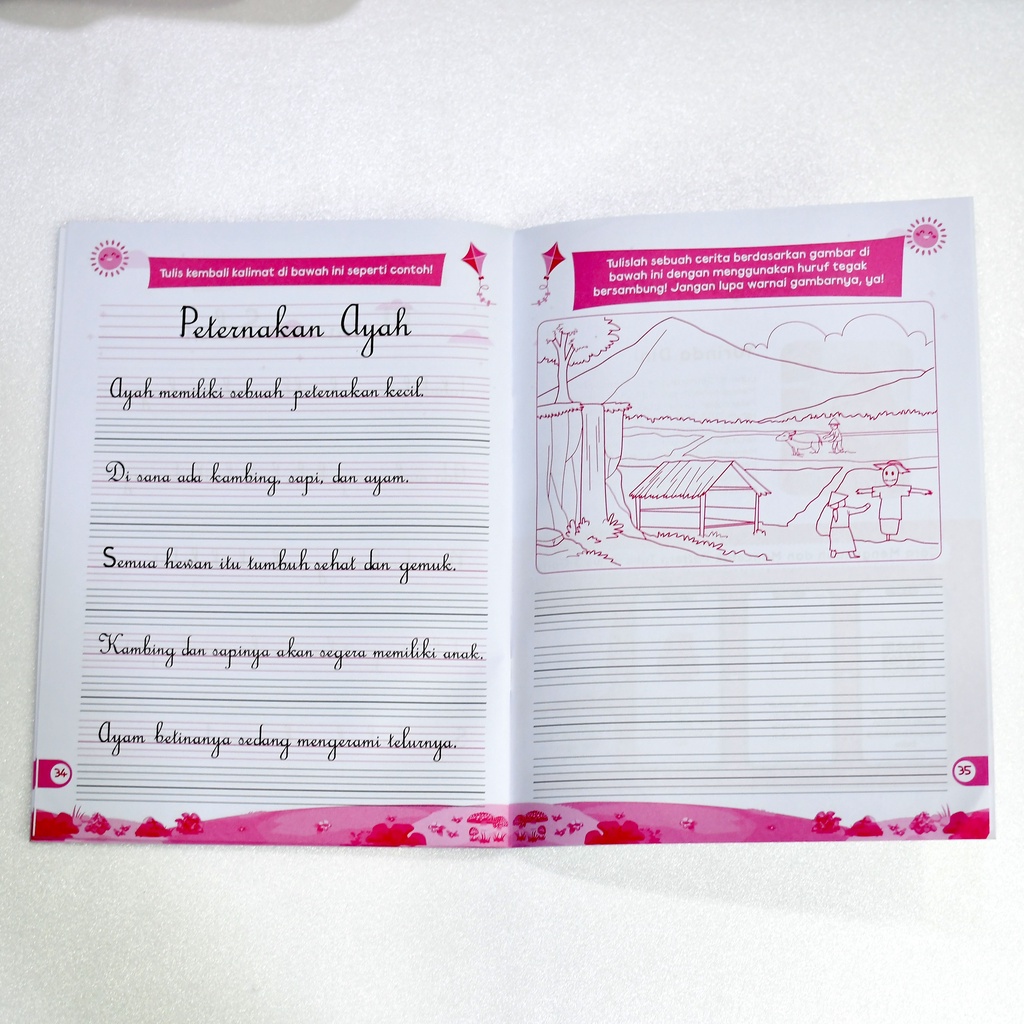 Tulis kembali kalimat di bawah ini seperti contoh!
Peternakan Ayah
Ayah memiliki sebuah peternakan kecil.
Di sana ada kambing, sapi, dan ayam.
Semua hewan itu tumbuh sehat dan gemuk.
Kambing dan sapinya akan segera memiliki anak.
Ayam betinanya sedang mengerami telurnya.
34
Tulislah sebuah cerita berdasarkan gambar di
bawah ini dengan menggunakan huruf tegak
bersambung! Jangan lupa warnai gambarnya, ya!
35